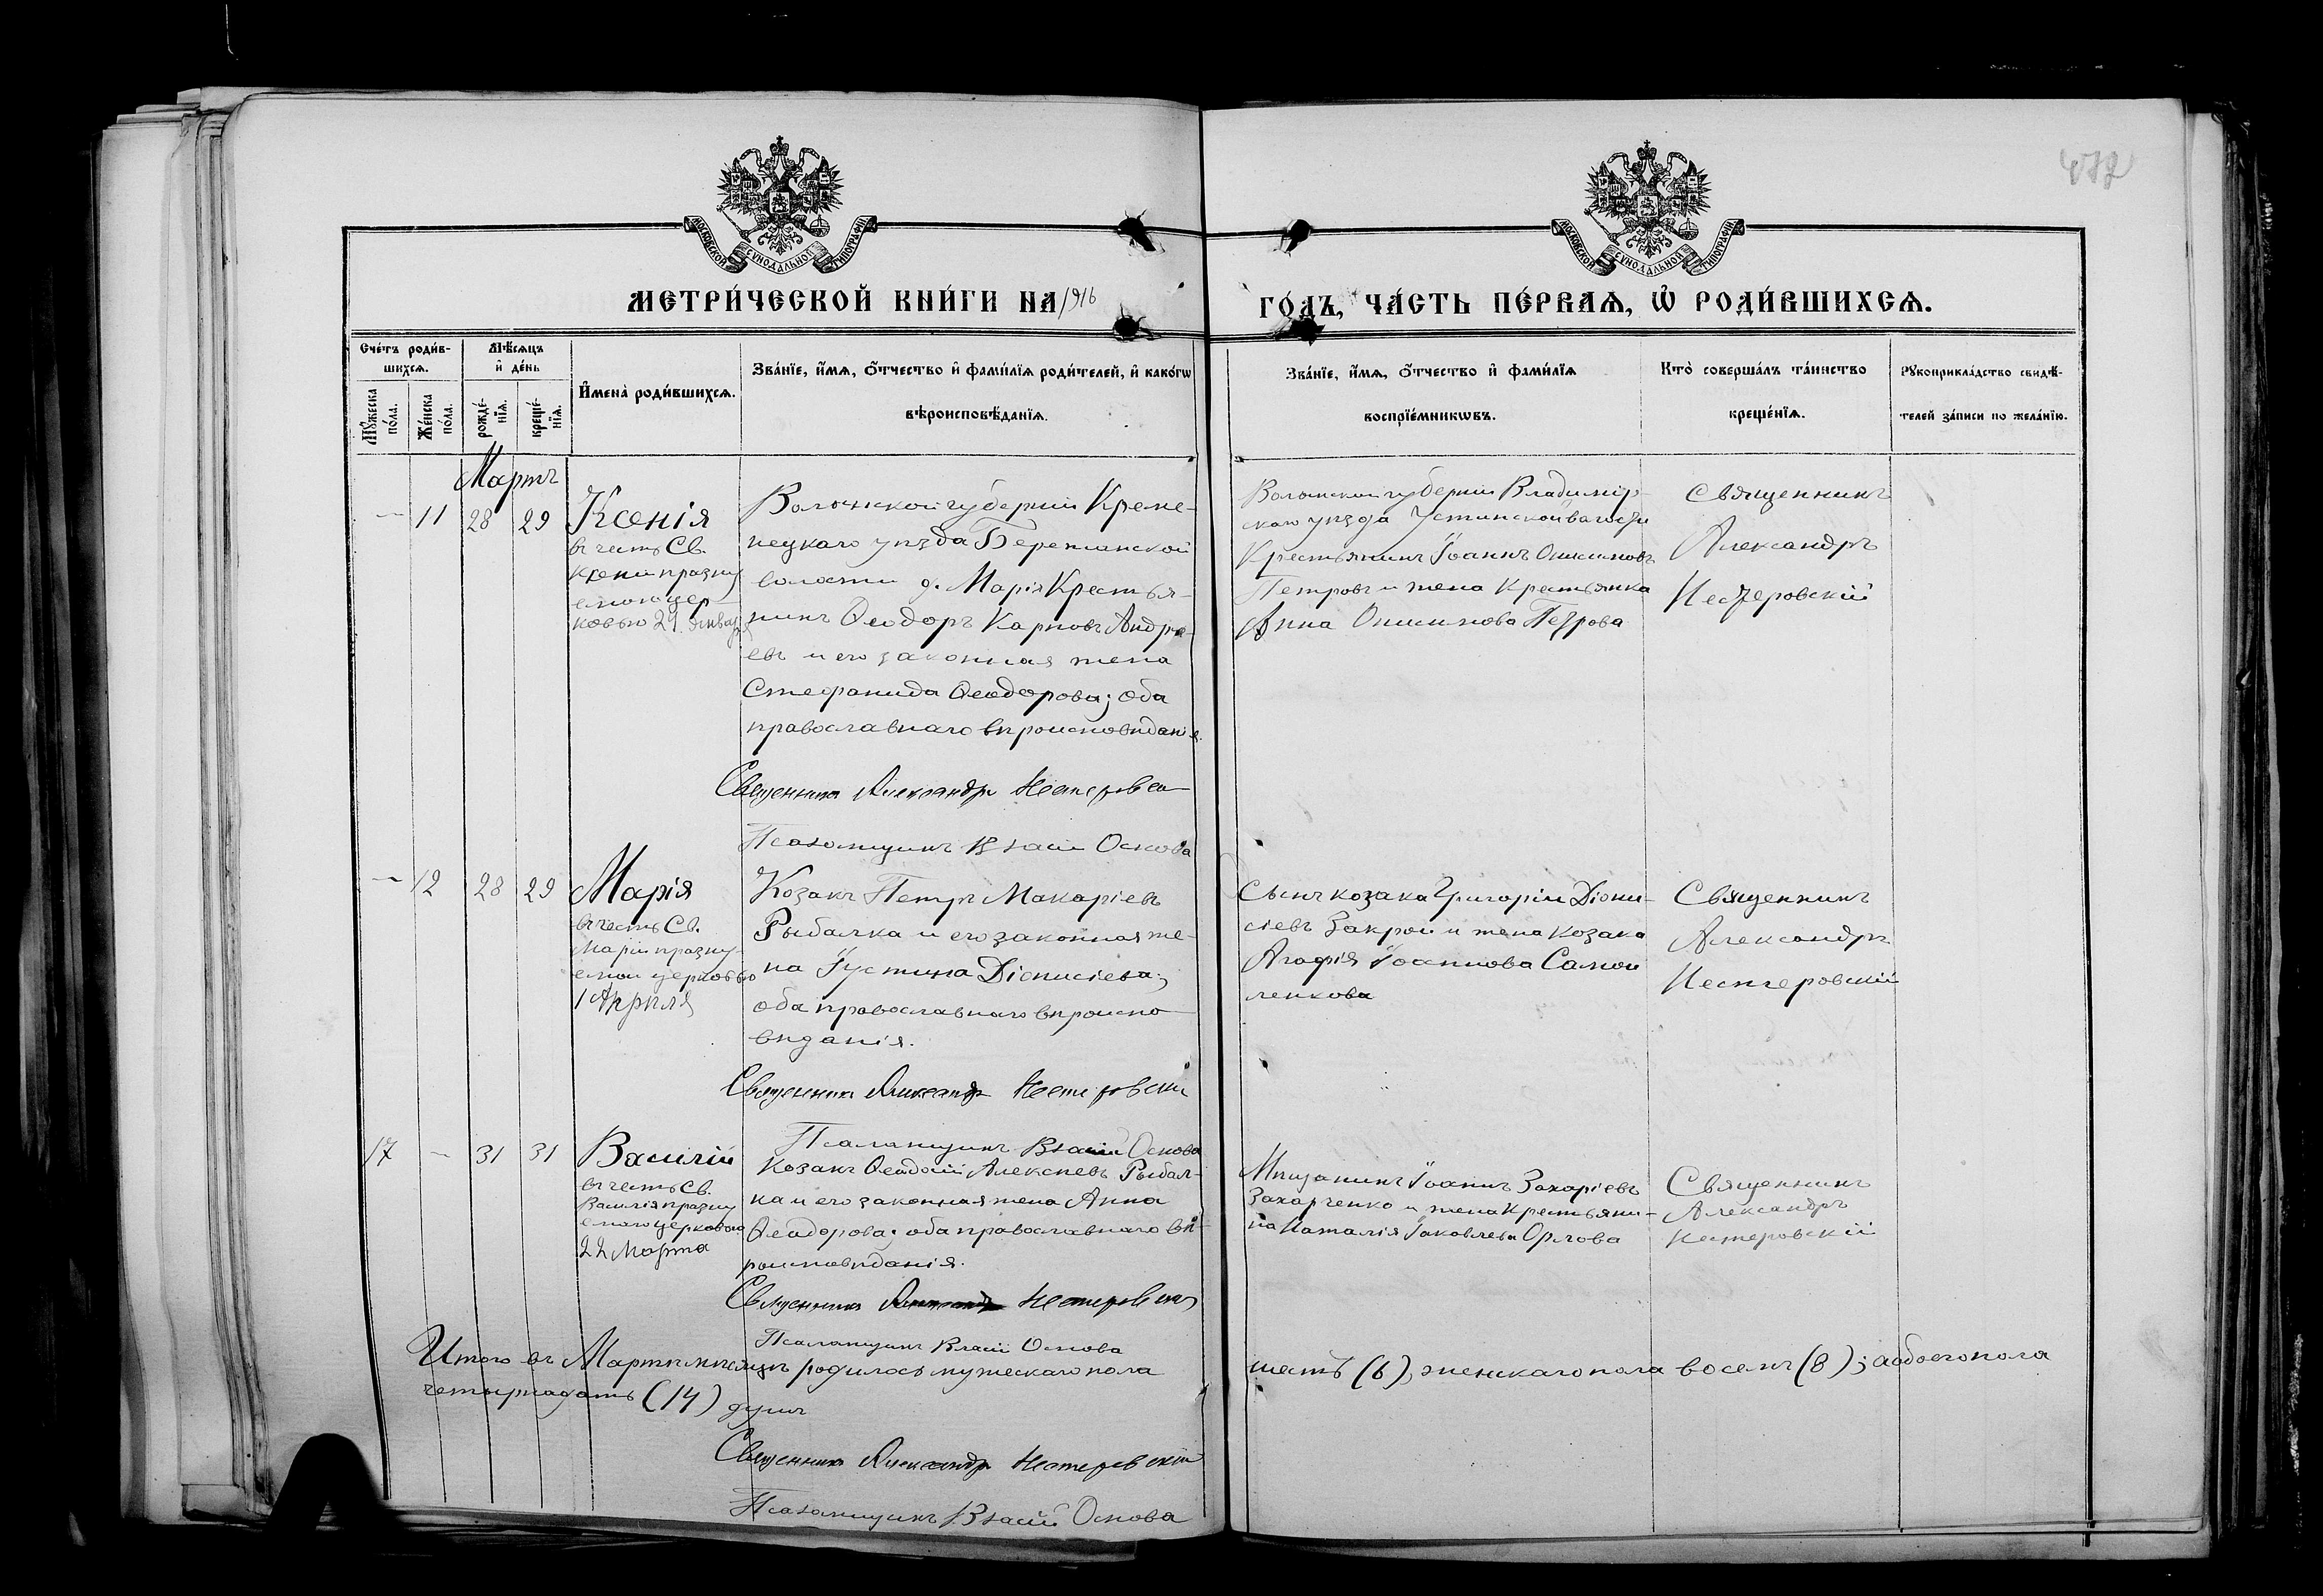 472
МОСКОВСКОЙ СУНОДАЛЬНОЙ ТИПОГРАФІИ
МОСКОВСКОЙ СУНОДАЛЬНОЙ ТИПОГРАФІИ
МЕТРИ́ЧЕСКОЙ КНИ́ГИ НА 1916
ГО́ДЪ, ЧА́СТЬ ПЕ́РВАѦ, Ѡ҆ РОДИ́ВШИХСѦ.
Сче́тъ роди́в-
шихсѧ.
Мѹ́жеска
по́ла.
Же́нска
по́ла.
Мѣ́сѧцъ
и҆ де́нь
рожде́-
нїѧ.
креще́-
нїѧ.
И҆мена̀ роди́вшихсѧ.
Зва́нїе, и҆́мѧ, о҆́тчество и҆ фами́лїѧ роди́телей, и҆ како́гѡ
вѣроисповѣ́данїѧ.
Зва́нїе, и҆́мѧ, о҆́тчество и҆ фами́лїѧ
воспрїе́мникѡвъ.
Кто̀ соверша́лъ та́инство
креще́нїѧ.
Рѹкоприкла́дство свидѣ́-
телей за́писи по жела́нїю.
Мартъ
— 11 28 29
Ксенія
въ честь Св.
Ксеніи праздну
емою цер-
ковью 24 января
Волынской губерніи Креме-
нецкаго уѣзда Бережанской
волости д. Марія Крестья-
нинъ Ѳеодоръ Карповъ Андре-
евъ и его законная жена
Стефанида Ѳеодорова; оба
православнаго вѣроисповѣданія.
Священникъ Александръ Нестеровс
Псаломщикъ Власій Основа
Волынской губерніи Владимір-
скаго уѣзда Устинской волости
Крестьянинъ Іоаннъ Онисимовъ
Петровъ и жена Крестьянка
Анна Онисимова Петрова
Священникъ
Александръ
Нестеровскій
— 12 28 29
Марія
въ честь Св.
Маріи праздну-
емои церковью
1 Апрѣля
Козакъ Петръ Макаріевъ
Рыбалка и его законная же-
на Іустина Діонисіева;
оба православнаго вѣроиспо-
вѣданія.
Священникъ Александръ Нестеровскій
Псаломщикъ Власій Основа
Сынъ козака Григорій Діони-
сіевъ Закрои и жена козака
Агафія Іоаннова Самои
ленкова
Священникъ
Александръ
Нестеровскій
17 — 31 31
Василій
въ честь Св.
Василія праздну
емаго церковью
22 Марта
Козакъ Ѳеодосій Алексѣевъ Рыбал-
ка и его законная жена Анна
Ѳеодорова; оба православнаго вѣ-
роисповѣданія.
Священникъ Александръ Нестеровскій
Псаломщикъ Власій Основа
Мѣщанинъ Іоаннъ Захаріевъ
Захарченко и жена Крестьяни-
на Наталія Іаковлева Орлова
Священникъ
Александръ
Нестеровскій
Итого въ Мартѣ мѣсяцѣ родилось мужескаго пола
шесть (6), женскаго пола восемь (8); а обоего пола
четырнадцать (14) душъ
Священникъ Александръ Нестеровскій
Псаломщикъ Власій Основа